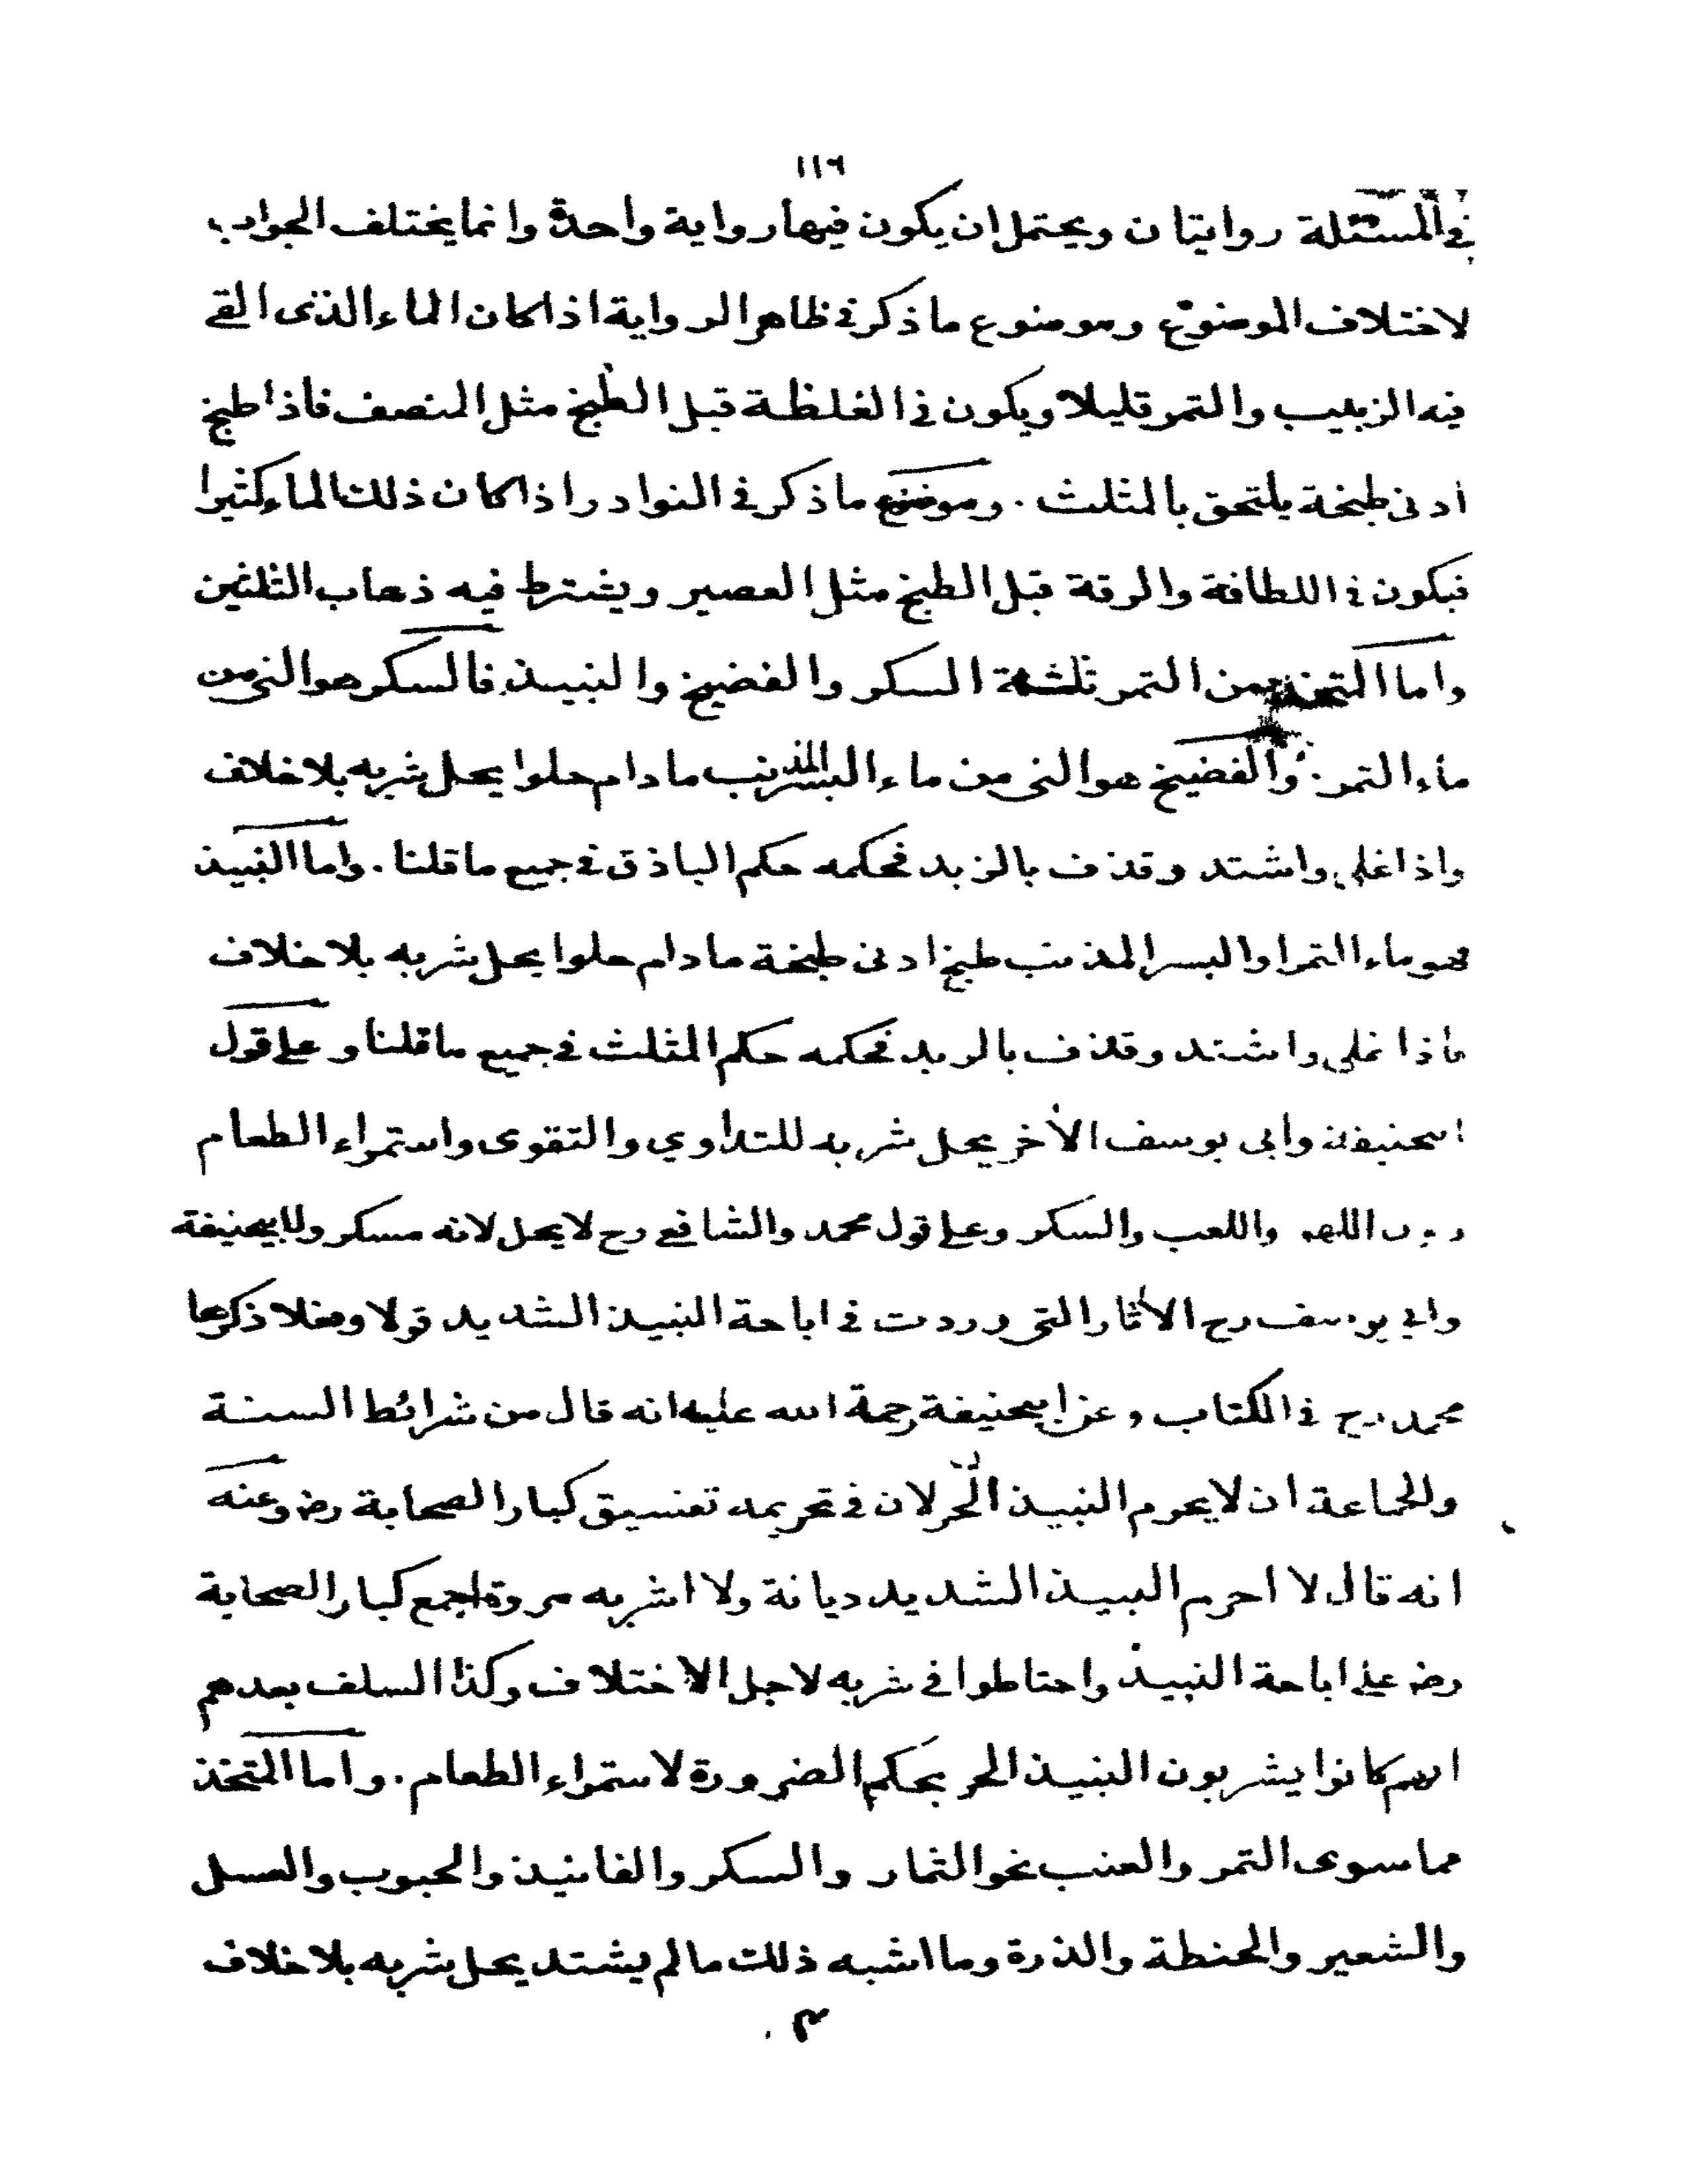 ١١٦
في المسئلة روايتان ويحتمل ان يكون فيها رواية واحدة وانما يختلف الجواب
لاختلاف الموضوع وموضوع ما ذكر في ظاهر الرواية اذا كان الماء الذى القي
فيه الزبيب والتمر قليلا ويكون في الغلظة قبل الطبخ مثل المنصف فاذا طبخ
ادنى طبخة يلتحق بالمثلث . وموضع ما ذكر في النوادر اذا كان ذلك الماء كثيرا
فيكون في اللطافة والرقة قبل الطبخ مثل العصير ويشترط فيه ذهاب الثلثين
واما المتخذ من التمر ثلثة السكر والفضيخ والنبيذ فالسكر هو الني من
ماء التمر . والفضيخ هو الني من ماء البسر المذنب ما دام حلوا يحل شربه بلا خلاف
واذا غلى واشتد وقذف بالزبد فحكمه حكم الباذق في جميع ما قلنا . واما النبيذ
فهو ماء التمر او البسر المذنب طبخ ادنى طبخة ما دام حلوا يحل شربه بلا خلاف
فاذا غلى واشتد وقذف بالزبد فحكمه حكم المثلث في جميع ما قلنا وعلى قول
ابيحنيفة وابى يوسف الأخر يحل شربه للتداوي والتقوى واستمراء الطعام
دون اللهو واللعب والسكر وعلى قول محمد والشافعي رح لا يحل لانه مسكر ولابيحنيفة
وابي يوسف رح الأثار التي وردت في اباحة النبيذ الشديد قولا وفعلا ذكرها
محمد رح في الكتاب وعن ابيحنيفة رحمة الله عليه انه قال من شرائط السنة
والجماعة ان لا يحرم النبيذ الحر لان في تحريمه تفسيق كبار الصحابة رض وعنه
انه قال لا احرم النبيذ الشديد ديانة ولا اشربه مروة اجمع كبار الصحابة
رض على اباحة النبيذ واحتاطوا في شربه لاجل الاختلاف وكذا السلف بعدهم
انهم كانوا يشربون النبيذ الحر بحكم الضرورة لاستمراء الطعام . واما المتخذ
مما سوى التمر والعنب نحو الثمار والسكر والفانيذ والحبوب والعسل
والشعير والحنطة والذرة وما اشبه ذلك ما لم يشتد يحل شربه بلا خلاف